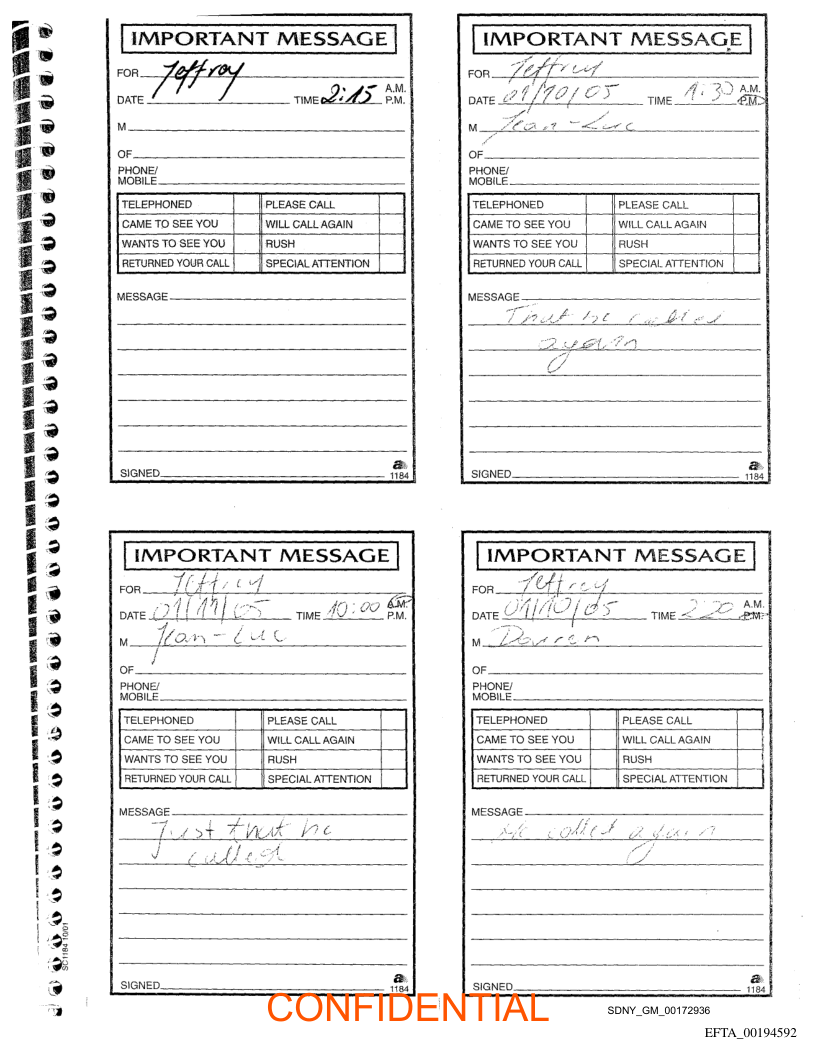 IMPORTANT MESSAGE
FOR Jeffroy
DATE TIME 2:15 A.M. P.M.
M
OF
PHONE/
MOBILE
TELEPHONED PLEASE CALL
CAME TO SEE YOU WILL CALL AGAIN
WANTS TO SEE YOU RUSH
RETURNED YOUR CALL SPECIAL ATTENTION
MESSAGE
SIGNED
a
1184
IMPORTANT MESSAGE
FOR Jeffrey
DATE 01/10/05 TIME 1:30 A.M. P.M.
M Jean-Luc
OF
PHONE/
MOBILE
TELEPHONED PLEASE CALL
CAME TO SEE YOU WILL CALL AGAIN
WANTS TO SEE YOU RUSH
RETURNED YOUR CALL SPECIAL ATTENTION
MESSAGE
That he called
again
SIGNED
a
1184
IMPORTANT MESSAGE
FOR Jeffrey
DATE 01/11/05 TIME 10:00 A.M. P.M.
M Jean-Luc
OF
PHONE/
MOBILE
TELEPHONED PLEASE CALL
CAME TO SEE YOU WILL CALL AGAIN
WANTS TO SEE YOU RUSH
RETURNED YOUR CALL SPECIAL ATTENTION
MESSAGE
Just that he
called
SIGNED
a
1184
IMPORTANT MESSAGE
FOR Jeffrey
DATE 01/10/05 TIME 2 20 A.M. P.M.
M Darren
OF
PHONE/
MOBILE
TELEPHONED PLEASE CALL
CAME TO SEE YOU WILL CALL AGAIN
WANTS TO SEE YOU RUSH
RETURNED YOUR CALL SPECIAL ATTENTION
MESSAGE
He called again
SIGNED
a
1184
SC1184 10/01
CONFIDENTIAL
SDNY_GM_00172936
EFTA_00194592